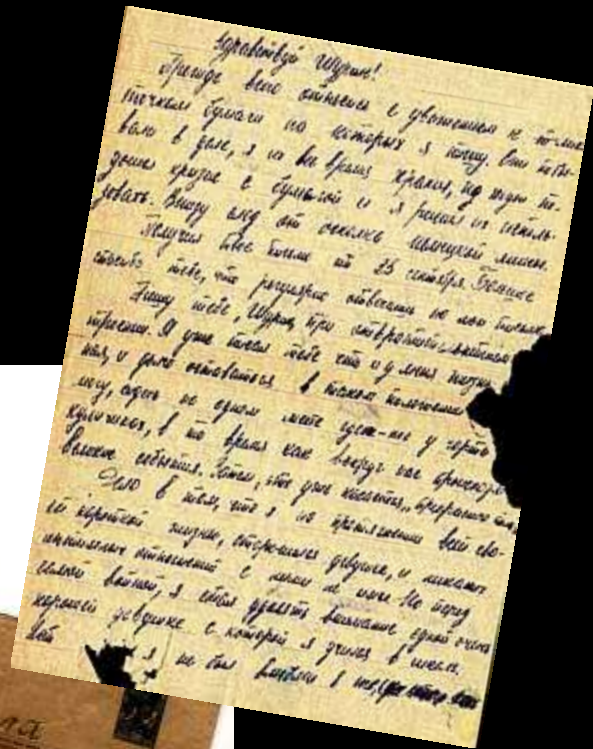 Здравствуй Шурик!
Прежде всего отнесись с уважением к
листочкам бумаги на которых я пишу. Они побы-
вали в деле, я их все время хранил, но ждать по-
дошел кризис с бумагой и я решил их исполь-
зовать. Внизу след от осколка немецкой мины.
Получил твое письмо от 25 сентября. Большое
спасибо тебе, что регулярно отвечаешь на мои письма.
Пишу тебе, Шурик, при отвратительном
настроении. Я уже писал тебе что и у меня жизнь
и даже оставаться в таком положении
могу, сидеть на одном месте где-то у черта
куличках, в то время как вокруг нас происходят
великие события. Затем, это уже касается
Дело в том, что я на протяжении всей сво-
ей короткой жизни, сторонился девушек, и никаких
отношений с ними не имел. Но перед
самой войной, я стал уделять внимание одной очень
хорошей девушке с которой я учился в школе.
Нет я не был влюблен в нее,